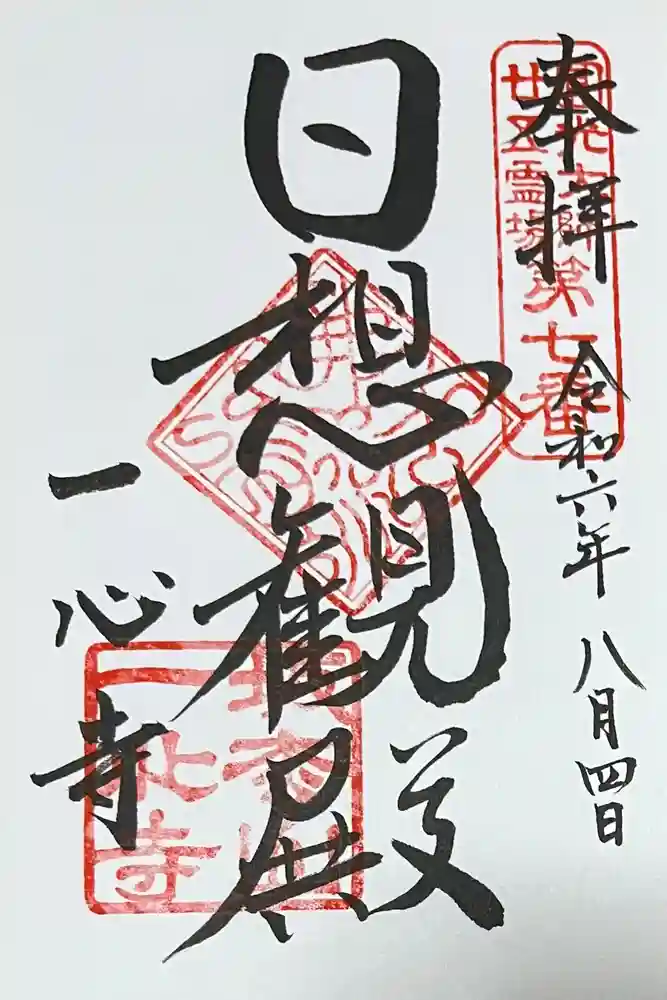 奉拝
令和六年 八月四日
圓光大師
廿五霊場第七番
日想観殿
一心寺
一心寺